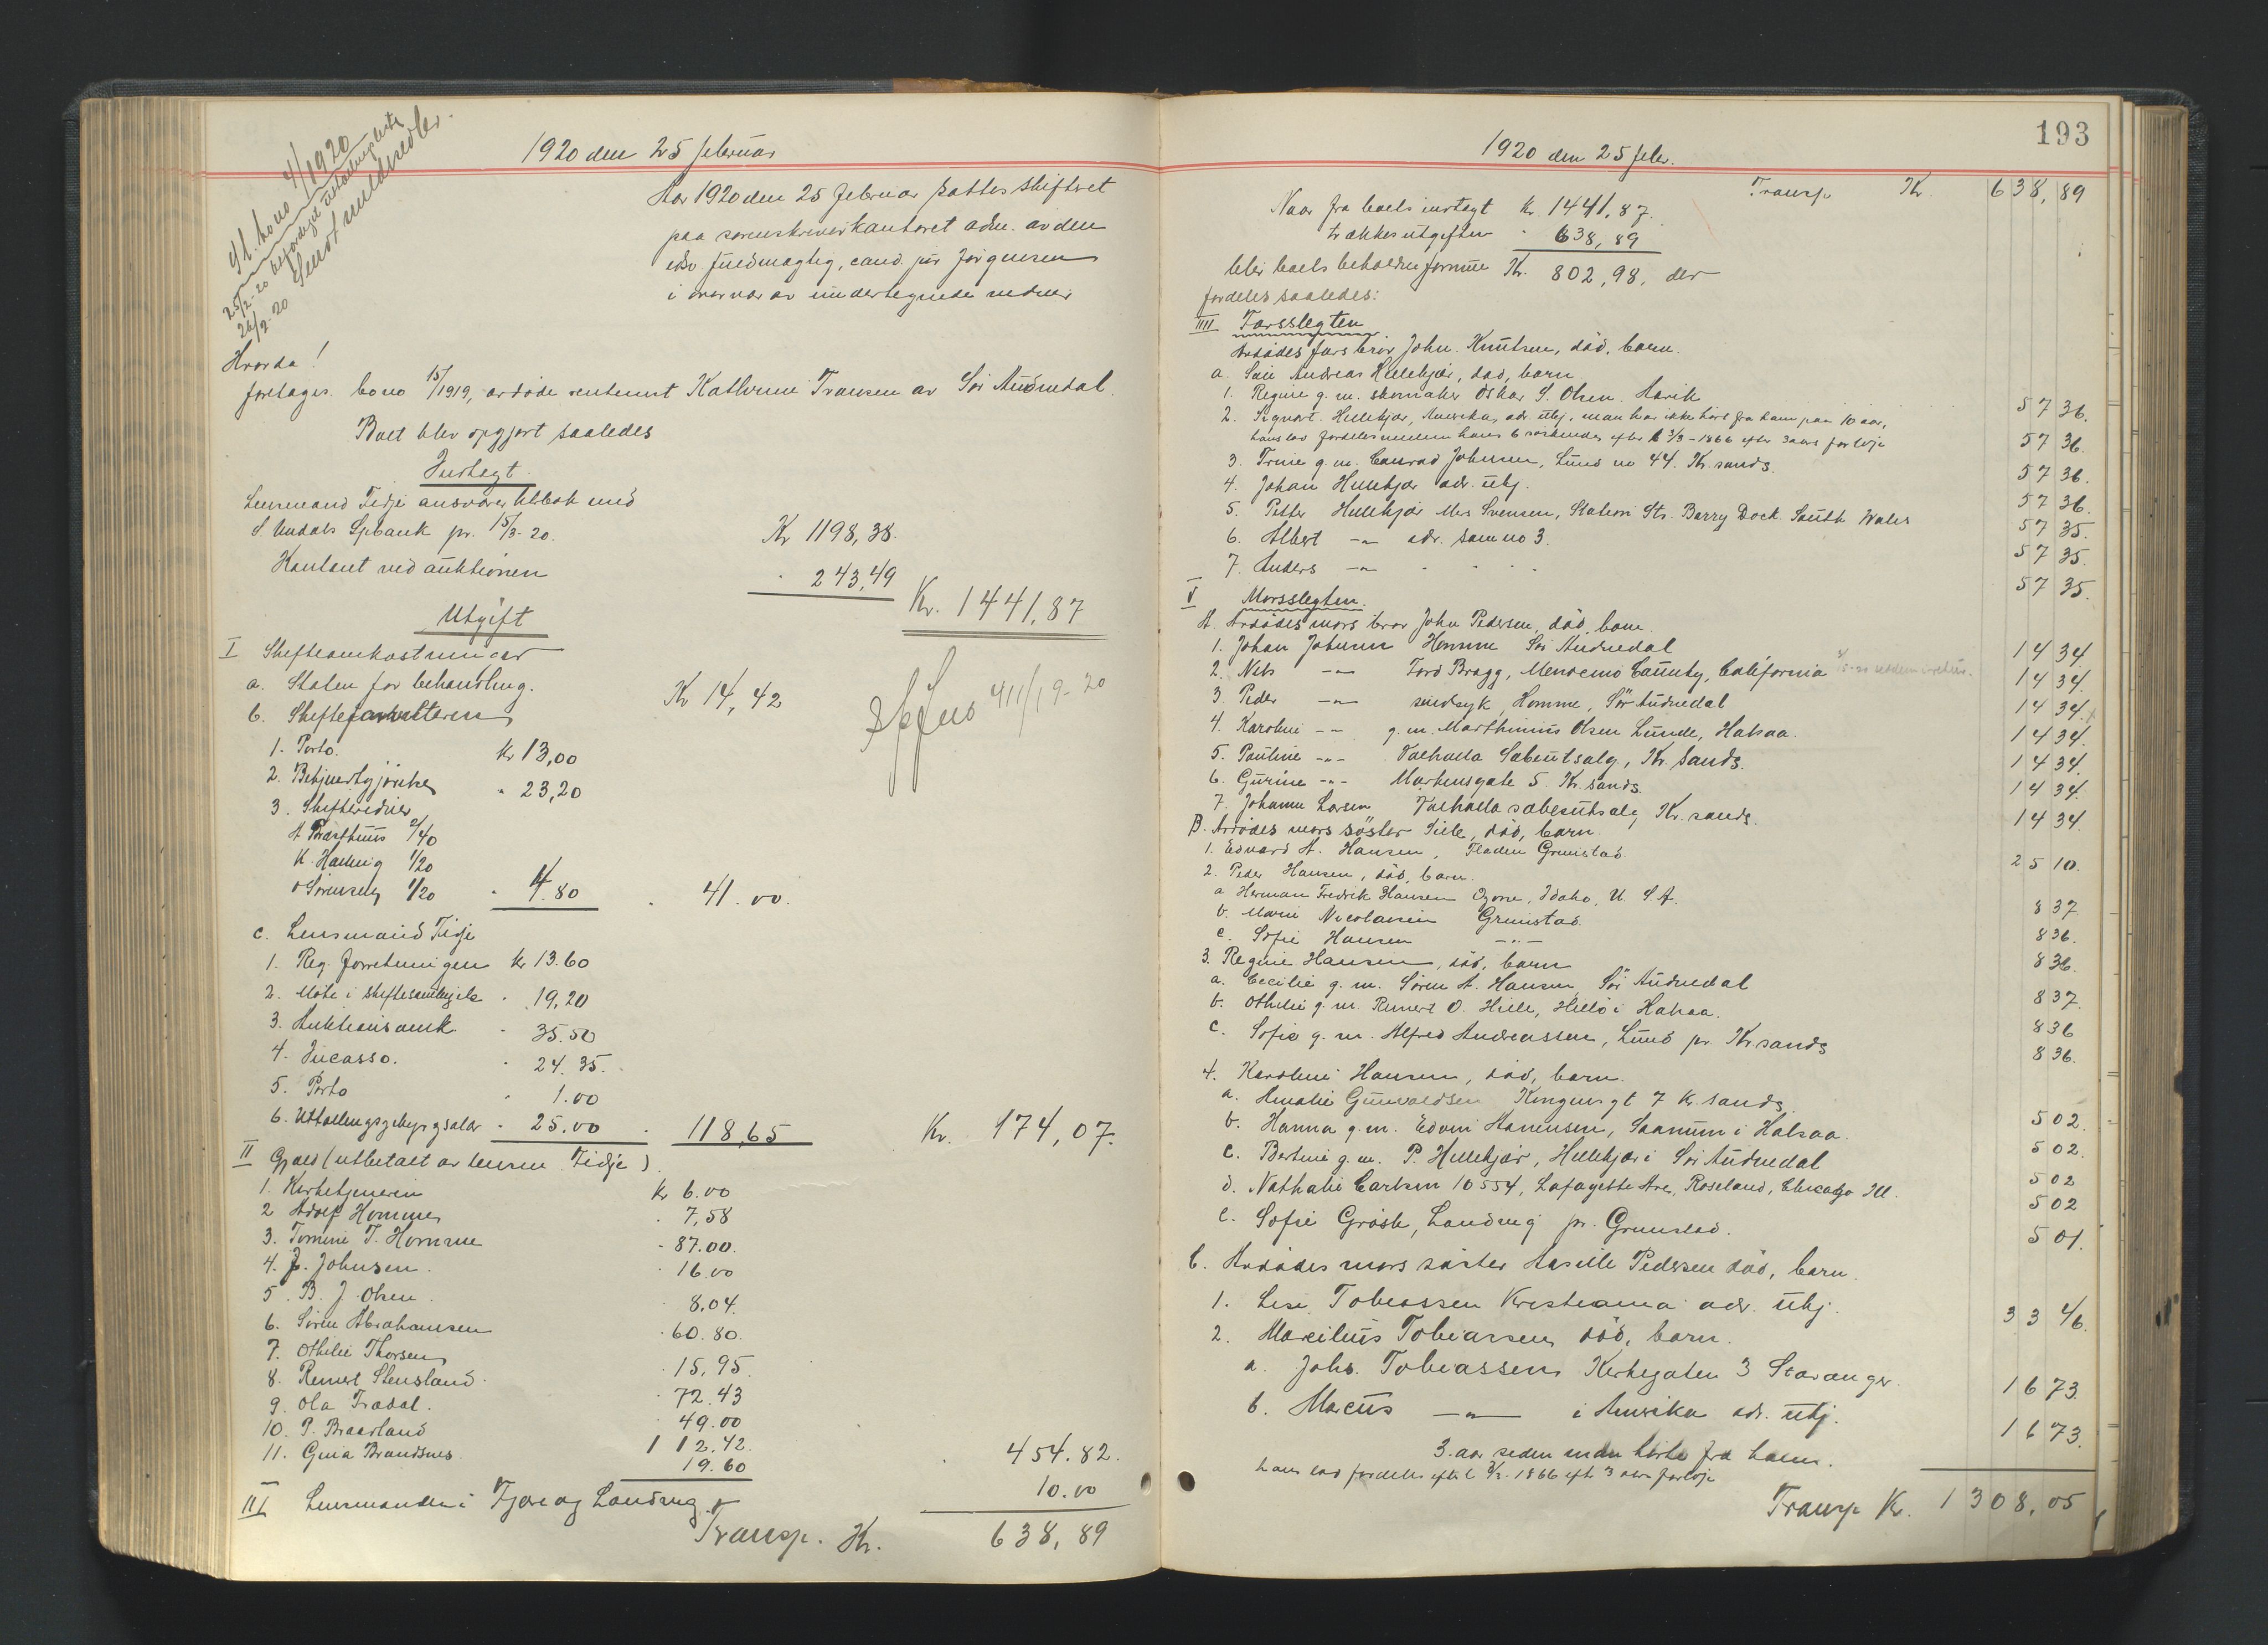 1920 den 25 februar
4/1920
25/2-20
26/2-20
Aar 1920 den 25 februar sattes skifteret
paa sorenskriverkontoret adm. av den
edsv. fuldmægtig, cand. jur Jørgensen
i overvær av undertegnede vidner
Hvorda!
foretages bo no 15/1919, avdøde rentenist Kathrine Fransen av Sør Audnedal.
Boet blev opgjort saaledes
Indtægt
Lensmand Tidje ansvarer tilbak med
S. Undals Spbank pr. 15/3-20. Kr 1198,38.
Kontant ved auktionen " 243,49
Kr. 1441,87
Utgift
I Skifteomkostninger
a. Staten for behandling. Kr 14,42
b. Skifteforvalteren
1. Porto. kr 13,00
2. Bekjendtgjørelse " 23,20
3. Skiftevidner
A Præsthuus 2/40
K. Hartvig 1/20
O Sørensen 1/20 " 4.80 " 41.00.
c. Lensmand Tidje
1. Reg. forretningen kr 13.60
2. Møte i skiftesamling " 19,20
3. Auktionsomk. " 35.50
4. Incasso. " 24.35.
5. Porto " 1.00
6. Utlodningsgebyr " 25.00 " 118,65 Kr. 174,07.
II Gjæld (utbetalt av lensm. Tidje)
1. Kirketjeneren kr 6.00
2 Adolf Homme " 7,58
3. Tomine T. Homme " 87.00.
4. J. Johnsen. " 16.00
5. B. J. Olsen. " 8.04.
6. Søren Abrahamsen " 60.80.
7. Othilie Thorsen " 15,95
8. Reinert Stensland. " 72.43
9. Ola Tredal. " 49.00
10. P. Braarland 112.42.
11. Gina Brandsnes. 19.60 " 454.82.
III Lensmanden i Fjære og Landvig 10.00
Transp. Kr. 638,89
193
1920 den 25 febr.
Transp Kr. 638,89
Naar fra boets indtægt kr. 1441,87.
trækkes utgiften " 638,89
blir boets beholdne formue Kr. 802,98, der
fordeles saaledes:
IIII Farsslegten
Avdødes fars bror John Knutsen, død, barn.
a. Søn Andreas Hellekjær, død, barn
1. Regine g. m. skomaker Oskar S. Olsen Narvik 57 36.
2. Sigvart Hellekjær, Amerika, adr. ubj., man har ikke hørt fra ham paa 10 aar,
hans lod fordeles mellem hans 6 søskende efter l 3/3-1866 efter 3 aars forløp 57 36.
3. Trine g. m. Conrad Johnsen, Lund no 44. Kr. sands. 57 36.
4. Johan Hellekjær adr. ubj. 57 36.
5. Petter Hellekjær Mrs Svensen, Station Str. Barry Dock South Wales 57 35.
6. Albert —"— adr. som no 3. 57 35.
7. Anders —"— " " " 57 35.
V Morsslegten.
A. Avdødes mors bror John Pedersen, død, barn.
1. Johan Johnsen Homme Sør Audnedal 14 34.
2. Nils —"— Ford Bragg, Mendocino County, California 14 34.
3. Peder —"— sindsyk, Homme, Sør Audnedal 14 34.
4. Karoline —"— g. m. Marthinius Olsen Lunde, Halsaa. 14 34.
5. Pauline —"— Valhalla Sæbeutsalg, Kr. sands. 14 34.
6. Gurine —"— Markensgate 5. Kr. sands. 14 34.
7. Johanne Larsen Valhalla sæbeutsalg Kr. sands. 14 34
B. Avdødes mors søster Sille, død, barn.
1. Edvard A. Hansen, Fladen Grimstad. 25 10.
2. Peder Hansen, død, barn.
a Herman Fredrik Hansen Ozone, Idaho, U. S. A. 8 37
b. Marie Nicolaisen Grimstad. 8 36.
c. Sofie Hansen —"— 8 36.
3. Regine Hansen, død, barn
a. Cecilie g. m. Søren A. Hansen Sør Audnedal 8 37.
b. Othilie g. m. Reinert O. Hille, Hillø i Halsaa. 8 36
c. Sofie g. m. Alfred Andreassen, Lund pr. Kr. sands 8 36.
4. Karoline Hansen, død, barn.
a. Amalie Gunvaldsen Kongensgt 7 Kr. sands. 5 02.
b. Hanna g. m. Edvin Hanensen, Saanum i Halsaa. 5 02.
c. Bertine g. m. P. Hellekjær, Hellekjær i Sør Audnedal 5 02
d. Nathalie Carlsen 10554, Lafayette Ave, Roseland, Chicago Ill. 5 02
e. Sofie Grøsle, Landvig pr. Grimstad. 5 01.
C. Avdødes mors søster Aasille Pedersen død, barn.
1. Lise Tobiassen Kristiania adr. ubj. 33 46.
2. Marilius Tobiassen død, barn.
a. Johs. Tobiassen Kirkegaten 3 Stavanger. 16 73.
b. Marius —"— i Amerika adr. ubj. 16 73.
3. aar siden man hørte fra ham.
hans lod fordeles eft. l 3/3. 1866 eft. 3 aars forløp
Transp Kr. 1308,05